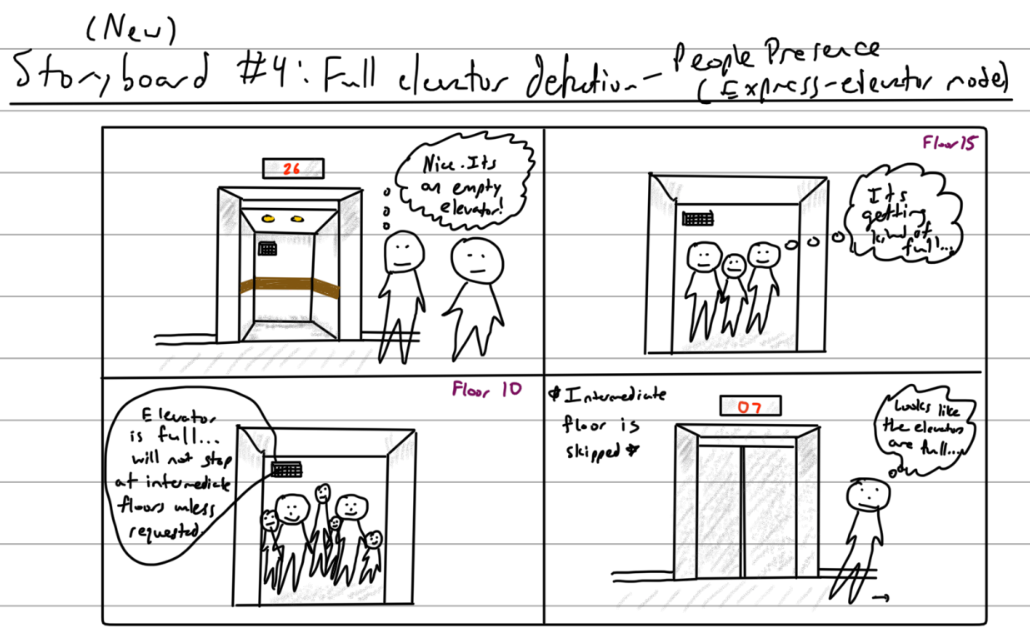 (New)
Storyboard #4: Full elevator detection - People Presence
(Express-elevator mode)
26
Nice. Its
an empty
elevator!
Floor 15
Its
getting
kind of
full...
Floor 10
Elevator
is full...
will not stop
at intermediate
floors unless
requested.
*Intermediate
floor is
skipped*
07
Looks like
the elevators
are full...